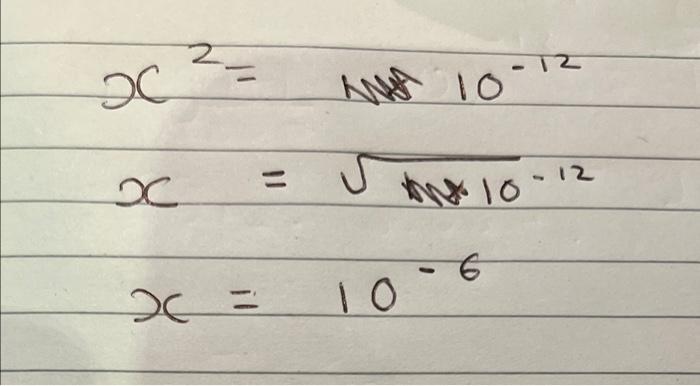 x² = 10⁻¹²
x = √10⁻¹²
x = 10⁻⁶